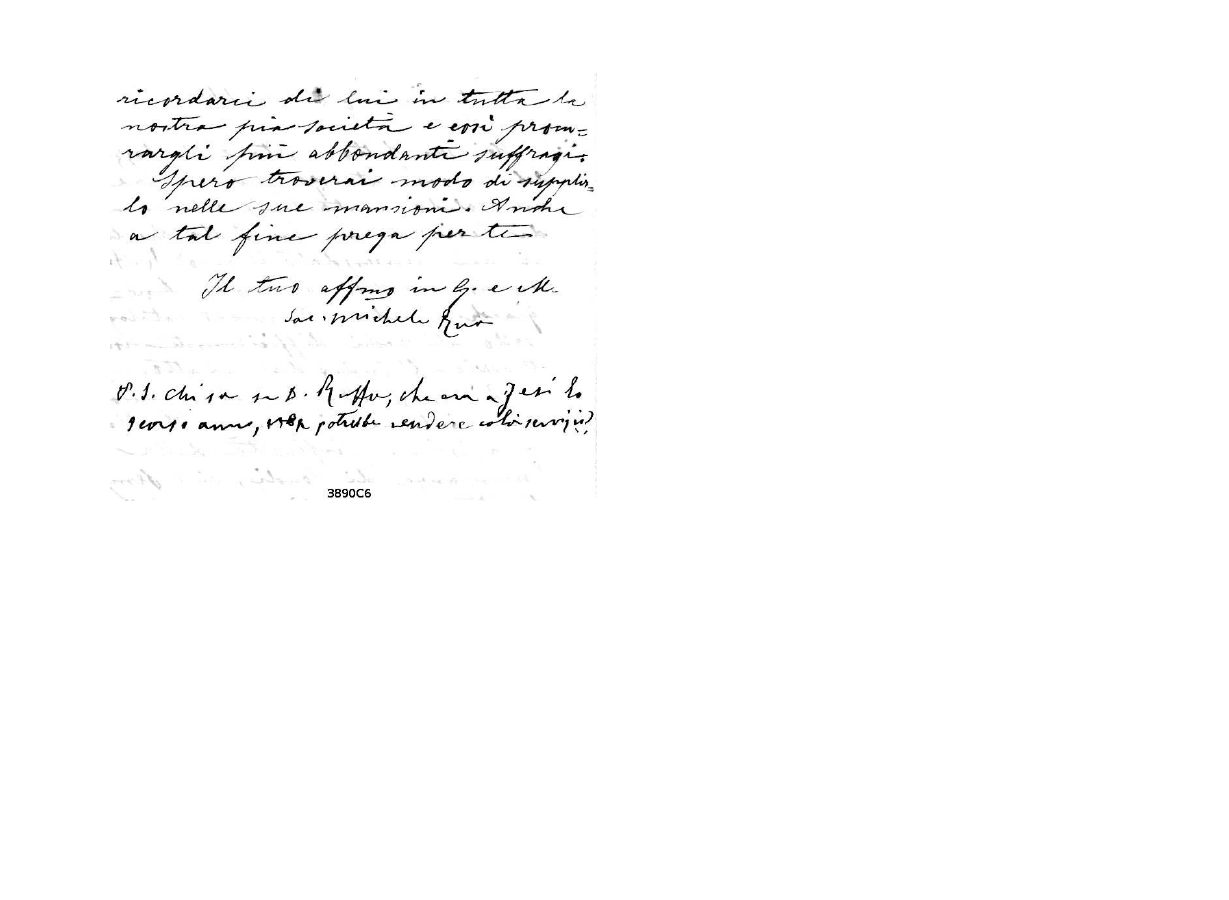 ricordarci di lui in tutta la
nostra pia società e così procu=
rargli più abbondanti suffragi.
Spero troverai modo di supplir=
lo nelle sue mansioni. Anche
a tal fine prega per te
Il tuo affmo in G. e M.
Sac. Michele Rua
P.S. Chi sa se D. Ruffo, che era a Jesi lo
scorso anno, non potrebbe rendere costì servizio?
3890C6